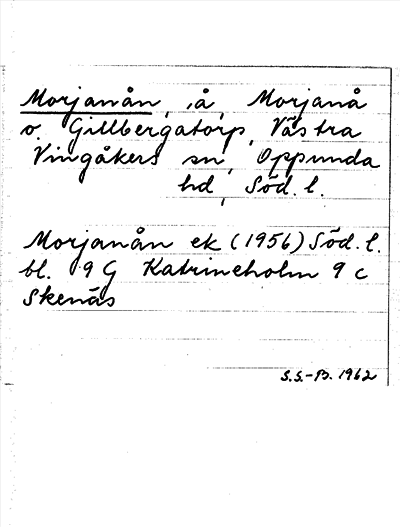 Morjanån, å, Morjanå
o. Gillbergatorp, Västra
Vingåkers sn, Oppunda
hd, Söd. l.
Morjanån ek (1956) Söd. l.
bl. 9 G Katrineholm 9 c
Skenäs
S.S.-B. 1962